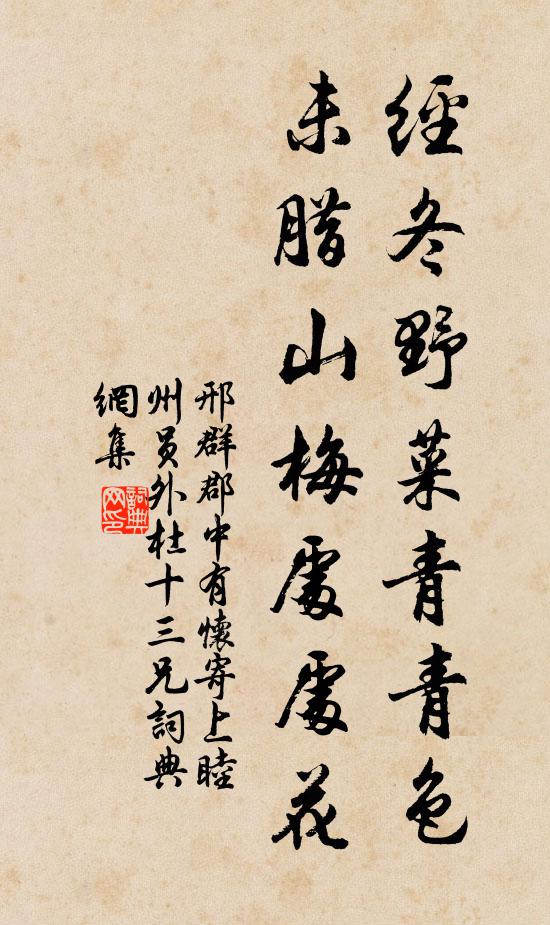 經冬野菜青青色
未腊山梅處處花
邢群郡中有懷寄上睦
州員外杜十三兄詞典
網集
詞典
网印